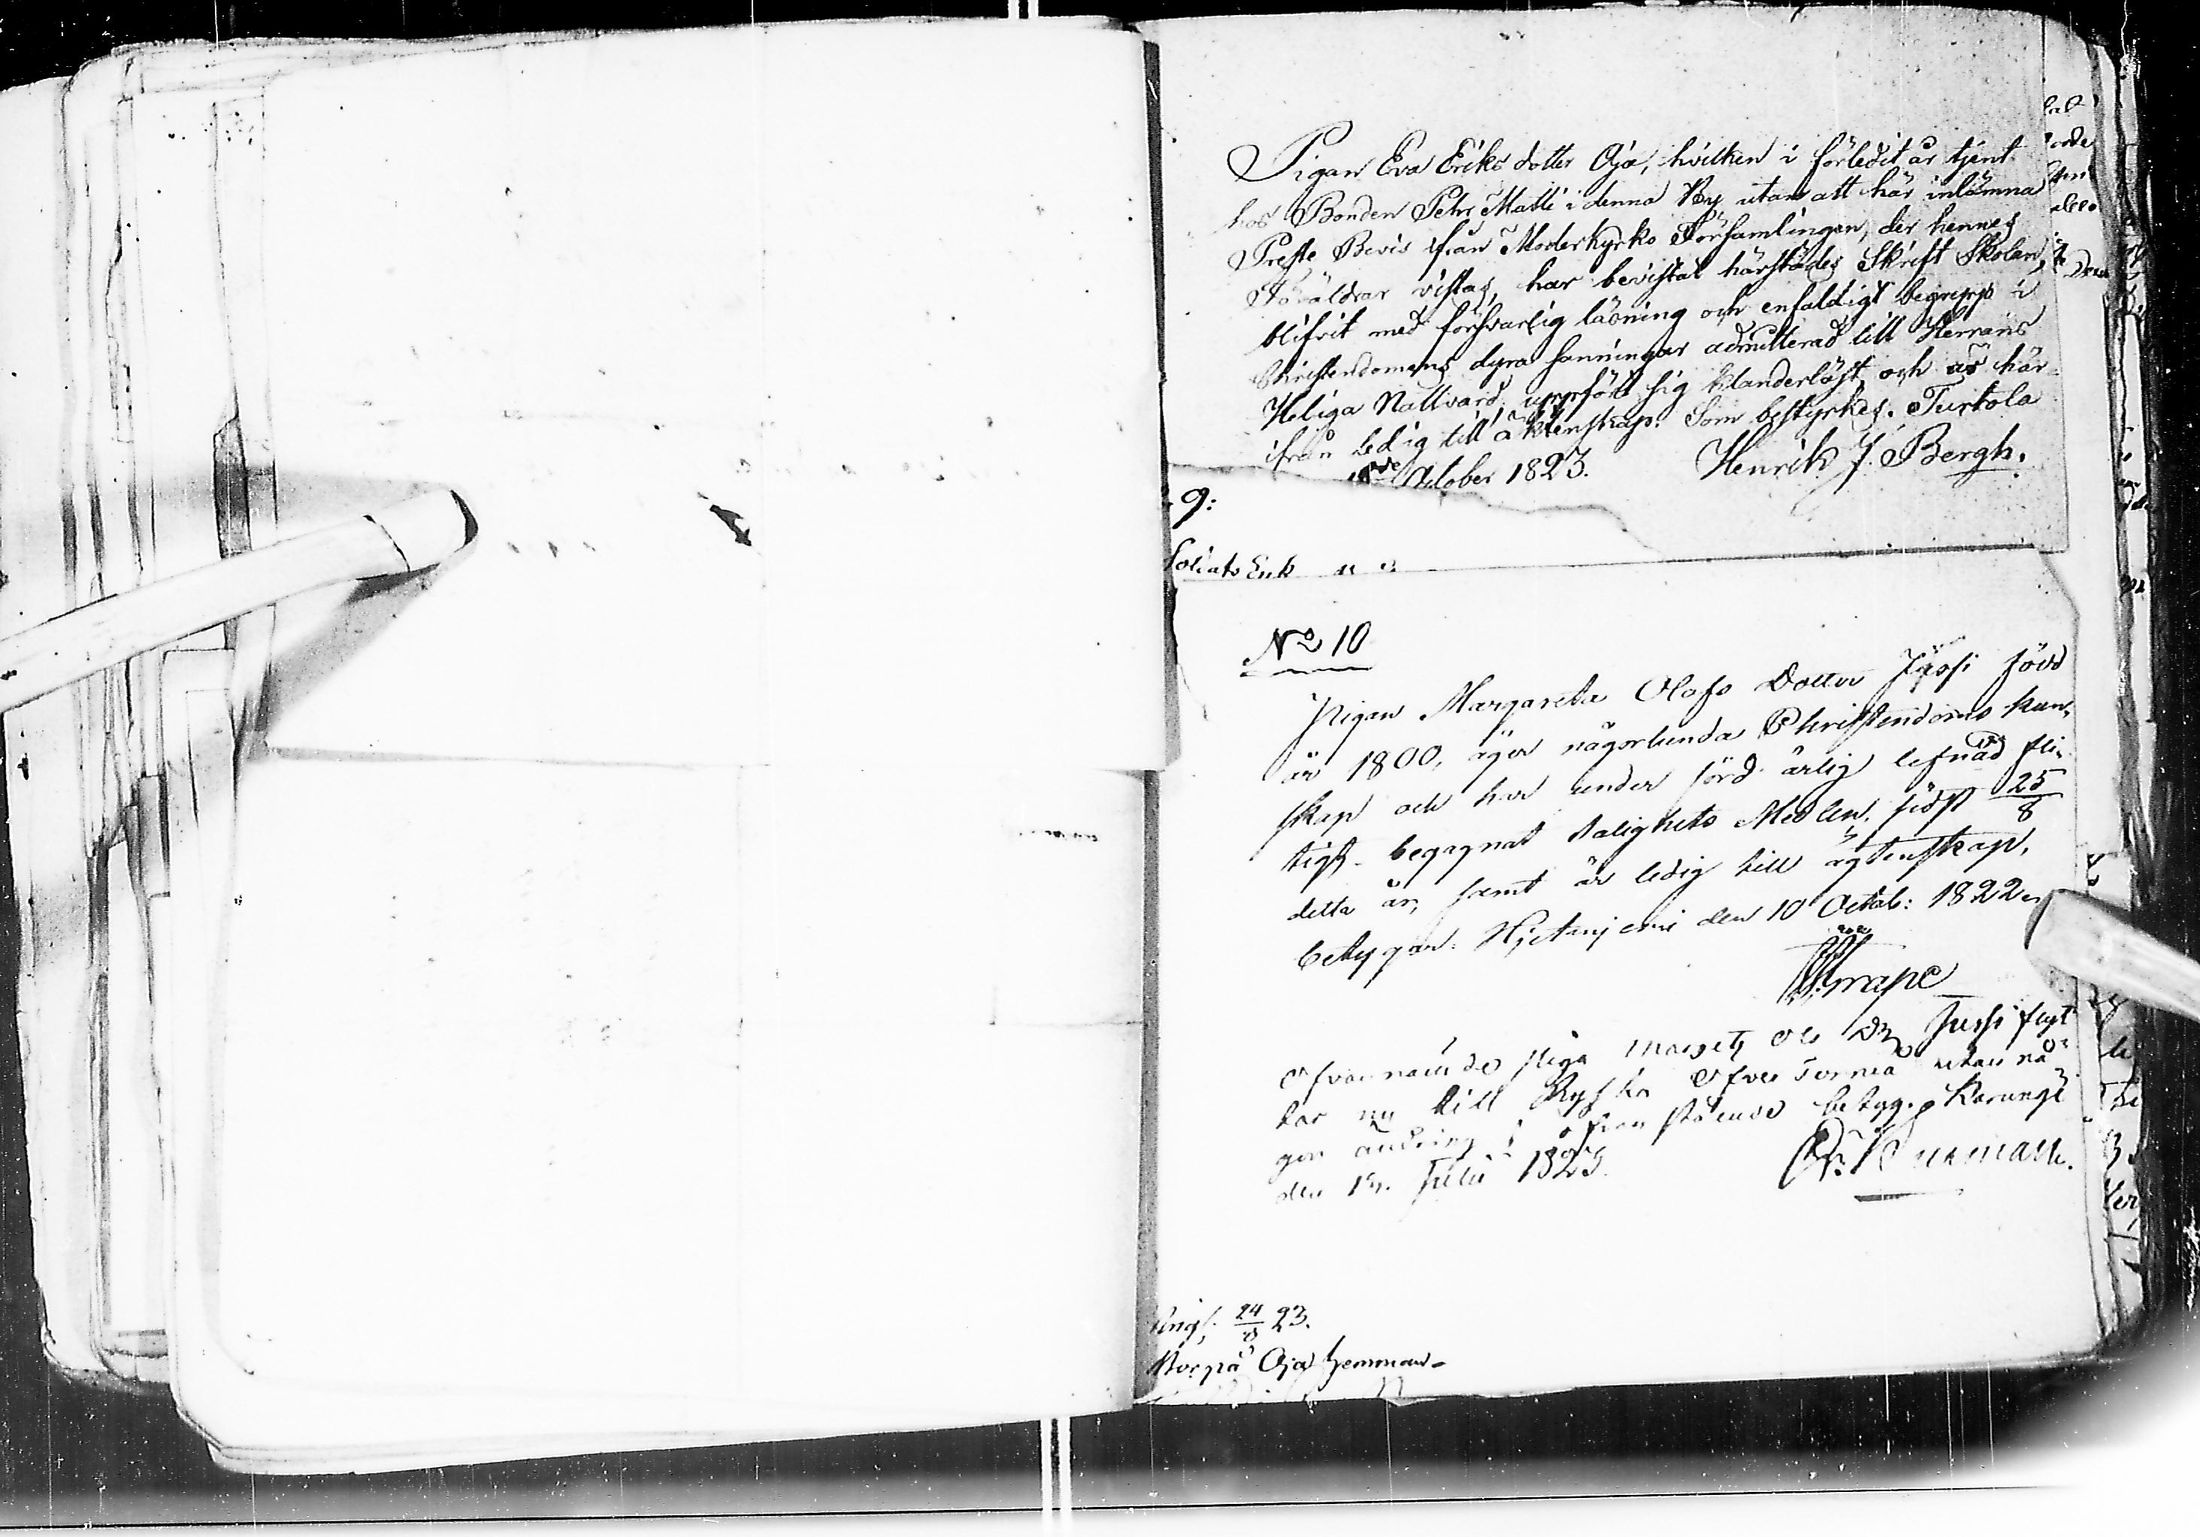 Pigan Eva Eriks dotter Oja, hvilken i förledit år tjent
hos Bonden Petr Matti i denna By utan att här inlämna
Preste Bevis från Moderkyrko Församlingen, der hennes
Föräldrar vistas, har bevistat härstädes Skrift Skolan,
blifvit med försvarlig läsning och enfaldigt begrepp i
Christendomens dyra sanningar admitterad till Herrans
Heliga Nattvard, uppfört sig klanderlöst och är här-
ifrån ledig till äktenskap. Som bestyrkes. Turtola
October 1823. Henrik J. Bergh.
9:
Soldats Enk
No 10
Pigan Margareta Olofs Dotter Jussi född
år 1800, äger någorlunda Christendoms kun-
skap och har under förd ärlig lefnad fli-
tigt begagnat Salighets Medlen, sidst 25/8
detta år, samt är ledig till ägtenskap,
betygar. Hjetanjemi den 10 Octob: 1822
Grape
Ofvannämde piga Margt Ols Dr Jussi flyt
tar nu till Ryska Öfver Torneå utan nå
gon ändring i ofvan stående betyg. Karungi
den Julii 1823.
Ling: 24/8 23.
Oja hemman